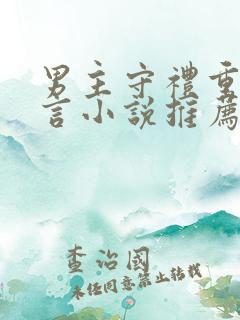 男主守禮重
言小說推薦
查治國
未经同意禁止转载